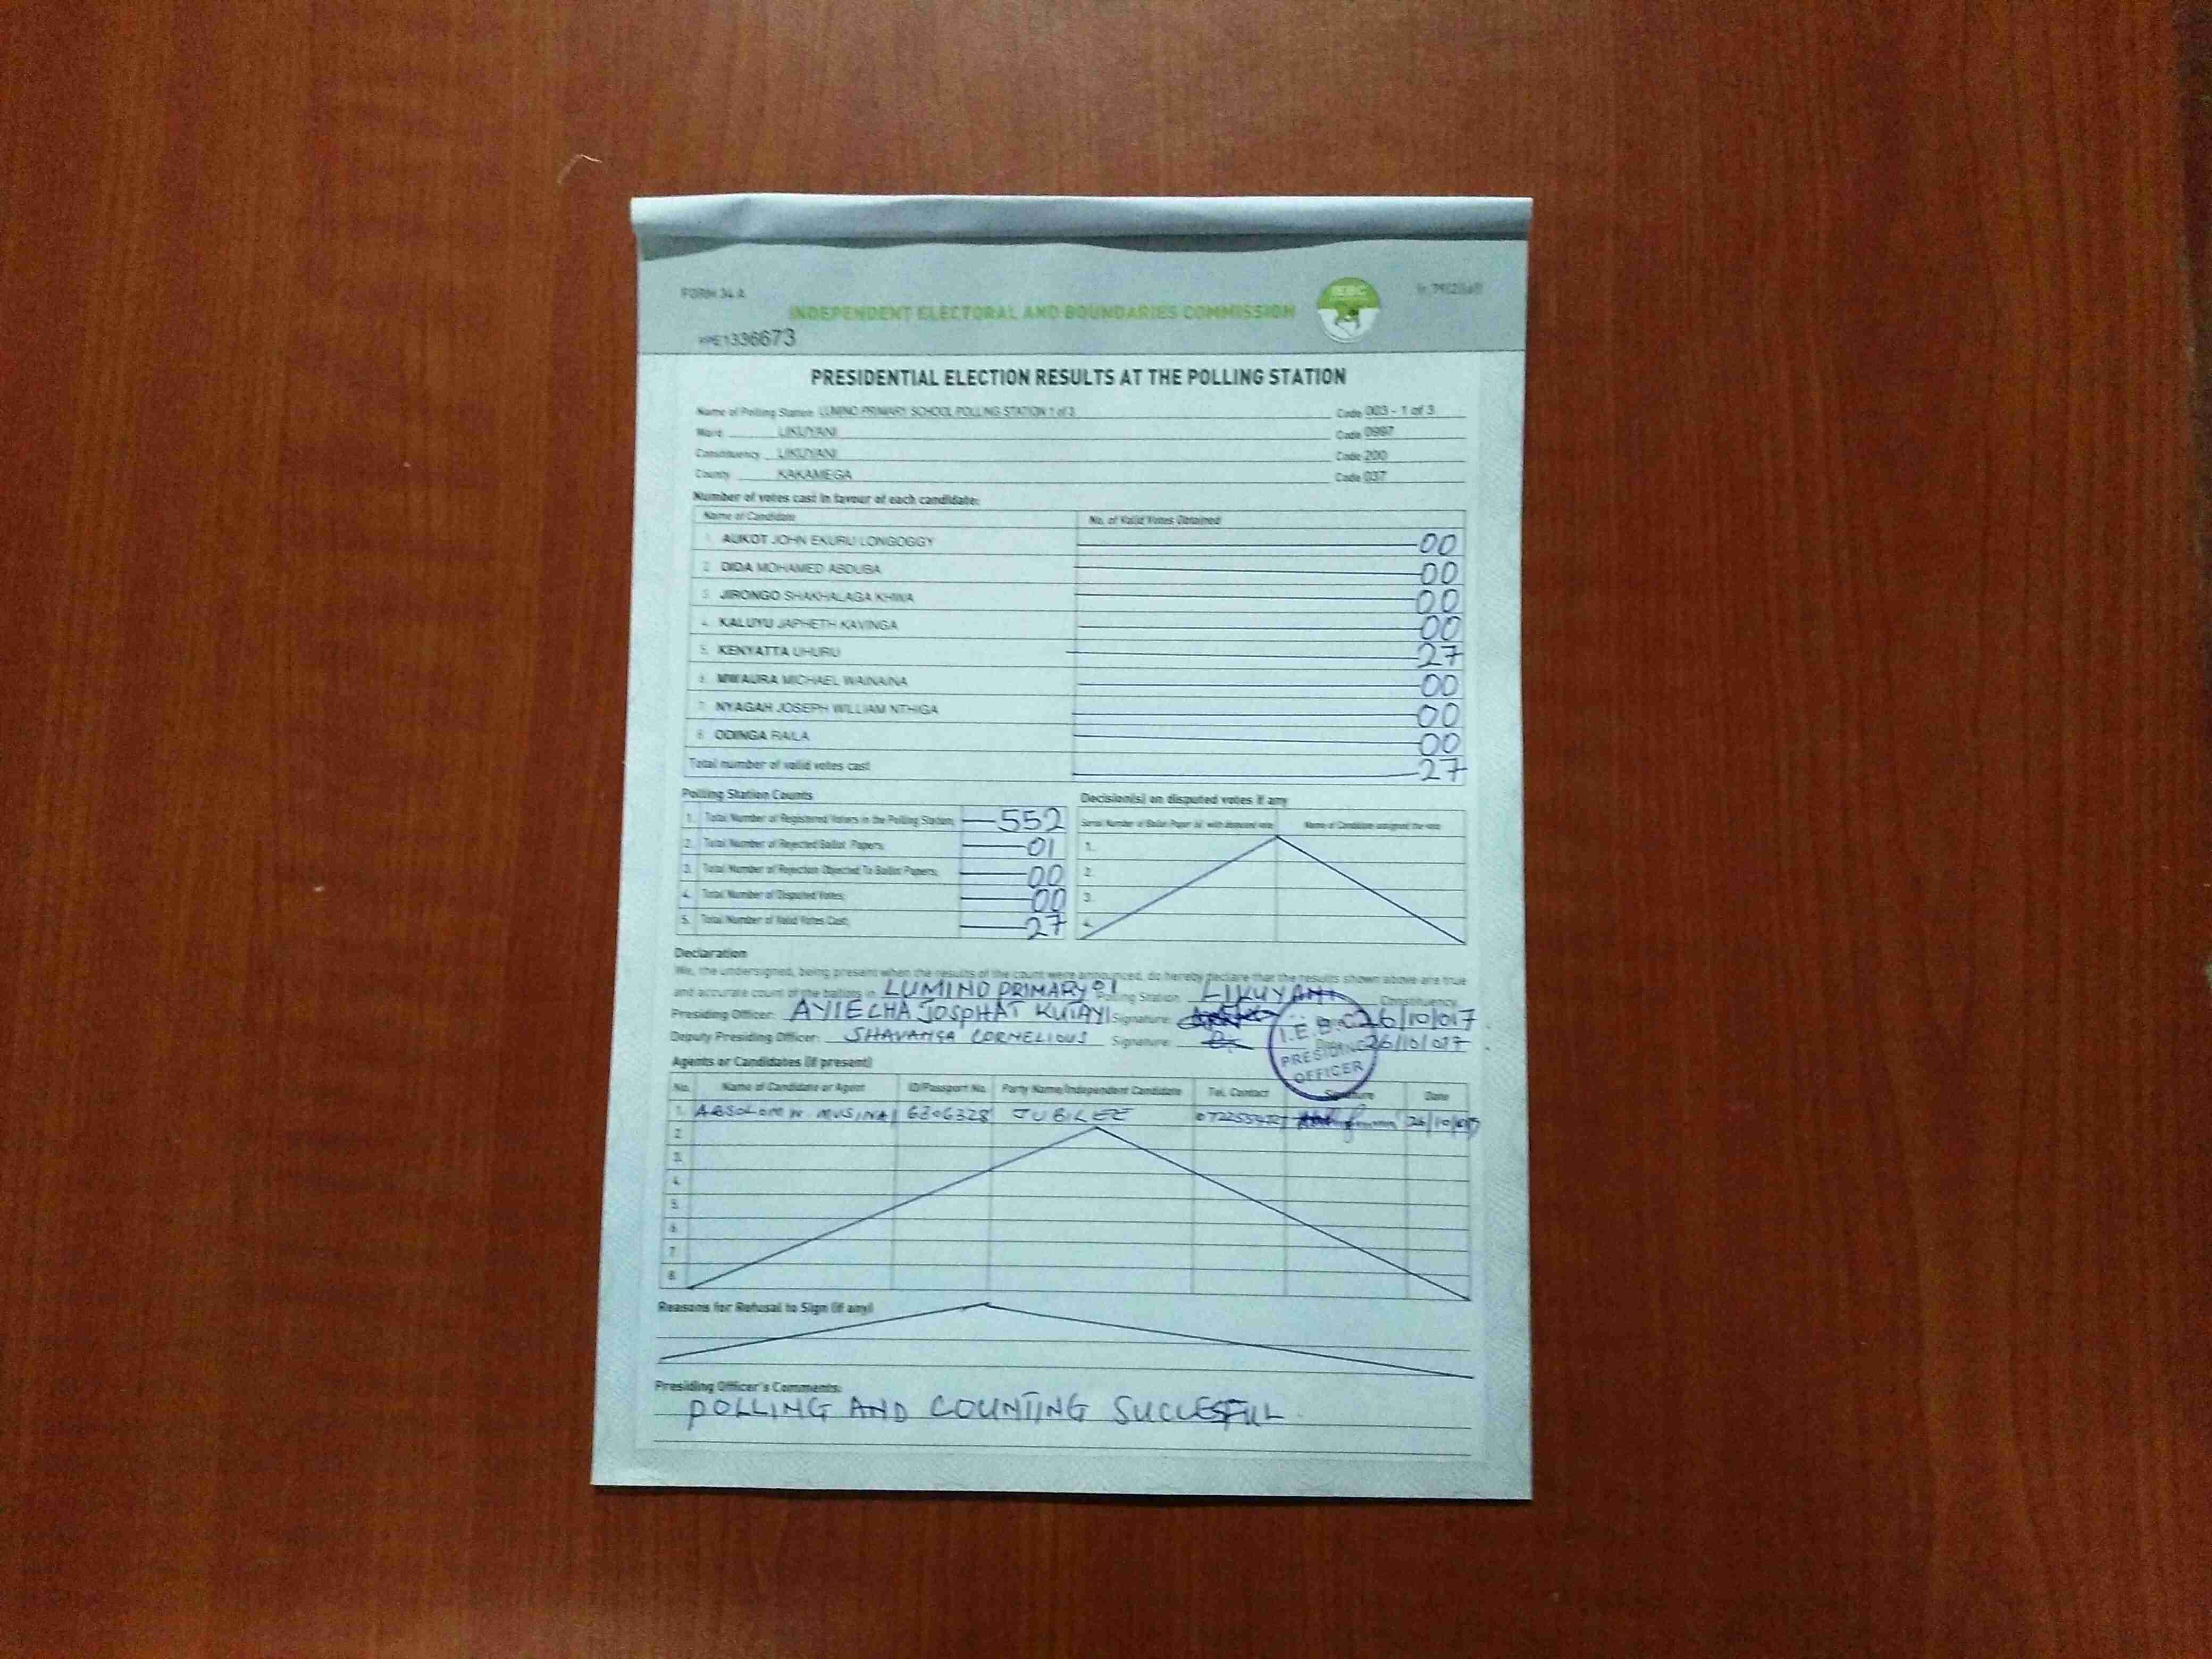 FORM 34 A
INDEPENDENT ELECTORAL AND BOUNDARIES COMMISSION
IEBC
1336673
PRESIDENTIAL ELECTION RESULTS AT THE POLLING STATION
Name of Polling Station LUMINO PRIMARY SCHOOL POLLING STATION 1 of 3 Code 003 - 1 of 3
Ward LIKUYANI Code 0997
Constituency LIKUYANI Code 200
County KAKAMEGA Code 037
Number of votes cast in favour of each candidate:
Name of Candidate No. of Valid Votes Obtained
1. AUKOT JOHN EKURU LONGOGGY 00
2. DIDA MOHAMED ABDUBA 00
3. JIRONGO SHAKHALAGA KHWA 00
4. KALUYU JAPHETH KAVINGA 00
5. KENYATTA UHURU 27
6. MWAURA MICHAEL WAINAINA 00
7. NYAGAH JOSEPH WILLIAM NTHIGA 00
8. ODINGA RAILA 00
Total number of valid votes cast 27
Polling Station Counts
1. Total Number of Registered Voters in the Polling Station; 552
2. Total Number of Rejected Ballot Papers; 01
3. Total Number of Rejection Objected To Ballot Papers; 00
4. Total Number of Disputed Votes; 00
5. Total Number of Valid Votes Cast; 27
Decision(s) on disputed votes if any
Serial Number of Ballot Paper (s) with disputed vote Name of Candidate assigned the vote
1.
2.
3.
4.
Declaration
We, the undersigned, being present when the results of the count were announced, do hereby declare that the results shown above are true
and accurate count of the ballots in LUMINO PRIMARY 01 Polling Station LIKUYANI Constituency
Presiding Officer: AYIECHA JOSPHAT KUTAYI Signature: 26/10/017
Deputy Presiding Officer: SHAVANGA CORNELIOUS Signature: Date 26/10/017
I.E.B.C
PRESIDING
OFFICER
Agents or Candidates (if present)
No. Name of Candidate or Agent ID/Passport No. Party Name/Independent Candidate Tel. Contact Signature Date
1. ABSOLOM N. MUSINAI 6306328 JUBILEE 26/10/017
2.
3.
4.
5.
6.
7.
8.
Reasons for Refusal to Sign (if any)
Presiding Officer's Comments:
POLLING AND COUNTING SUCCESFUL